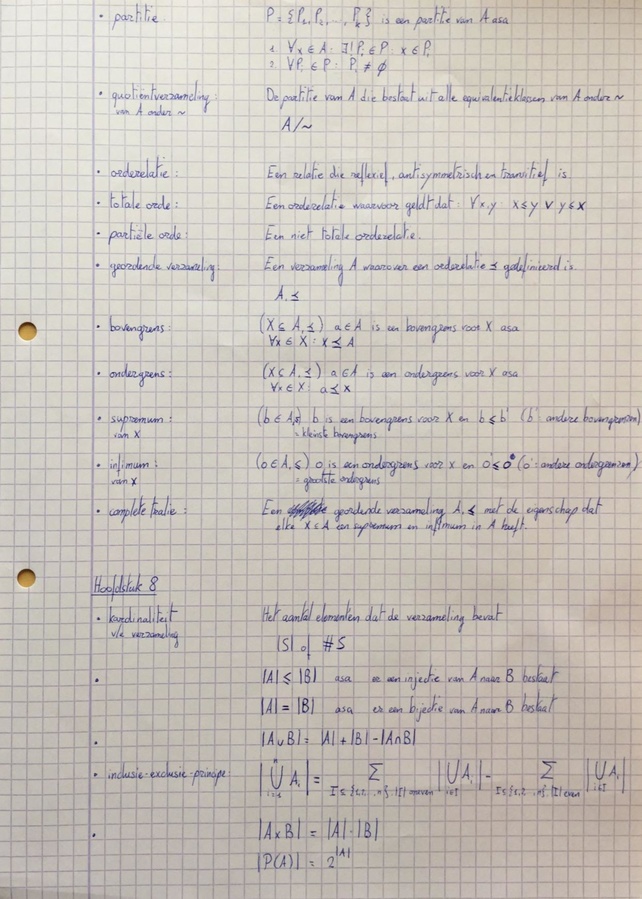 • partitie: P = {P₁, P₂, ..., Pₖ} is een partitie van A asa
1. ∀x ∈ A: ∃! Pᵢ ∈ P: x ∈ Pᵢ
2. ∀Pᵢ ∈ P: Pᵢ ≠ ∅
• quotiëntverzameling: De partitie van A die bestaat uit alle equivalentieklassen van A onder ~
van A onder ~
A/~
• orderelatie: Een relatie die reflexief, antisymmetrisch en transitief is
• totale orde: Een orderelatie waarvoor geldt dat: ∀x,y: x ≤ y ∨ y ≤ x
• partiële orde: Een niet totale orderelatie.
• geordende verzameling: Een verzameling A waarover een orderelatie ≼ gedefinieerd is.
A, ≼
• bovengrens: (X ⊆ A, ≼) a ∈ A is een bovengrens voor X asa
∀x ∈ X: x ≼ A
• ondergrens: (X ⊆ A, ≼) a ∈ A is een ondergrens voor X asa
∀x ∈ X: a ≼ x
• supremum: (b ∈ A, ≤) b is een bovengrens voor X en b ≤ b' (b': andere bovengrenzen)
van X = kleinste bovengrens
• infimum: (o ∈ A, ≤) o is een ondergrens voor x en o' ≤ o (o': andere ondergrenzen)
van X = grootste ondergrens
• complete tralie: Een geordende verzameling A, ≼ met de eigenschap dat
elke X ⊆ A een supremum en infimum in A heeft.
Hoofdstuk 8
• kardinaliteit Het aantal elementen dat de verzameling bevat
v/e verzameling
|S| of #S
• |A| ≤ |B| asa er een injectie van A naar B bestaat
|A| = |B| asa er een bijectie van A naar B bestaat
• |A∪B| = |A| + |B| - |A∩B|
• inclusie-exclusie-principe: |⋃ᵢ₌₁ⁿ Aᵢ| = ∑ I ⊆ {1,2,...,n}, |I| oneven |⋃ i∈I Aᵢ| - ∑ I ⊆ {1,2,...,n}, |I| even |⋃ i∈I Aᵢ|
• |A×B| = |A|·|B|
|P(A)| = 2^|A|